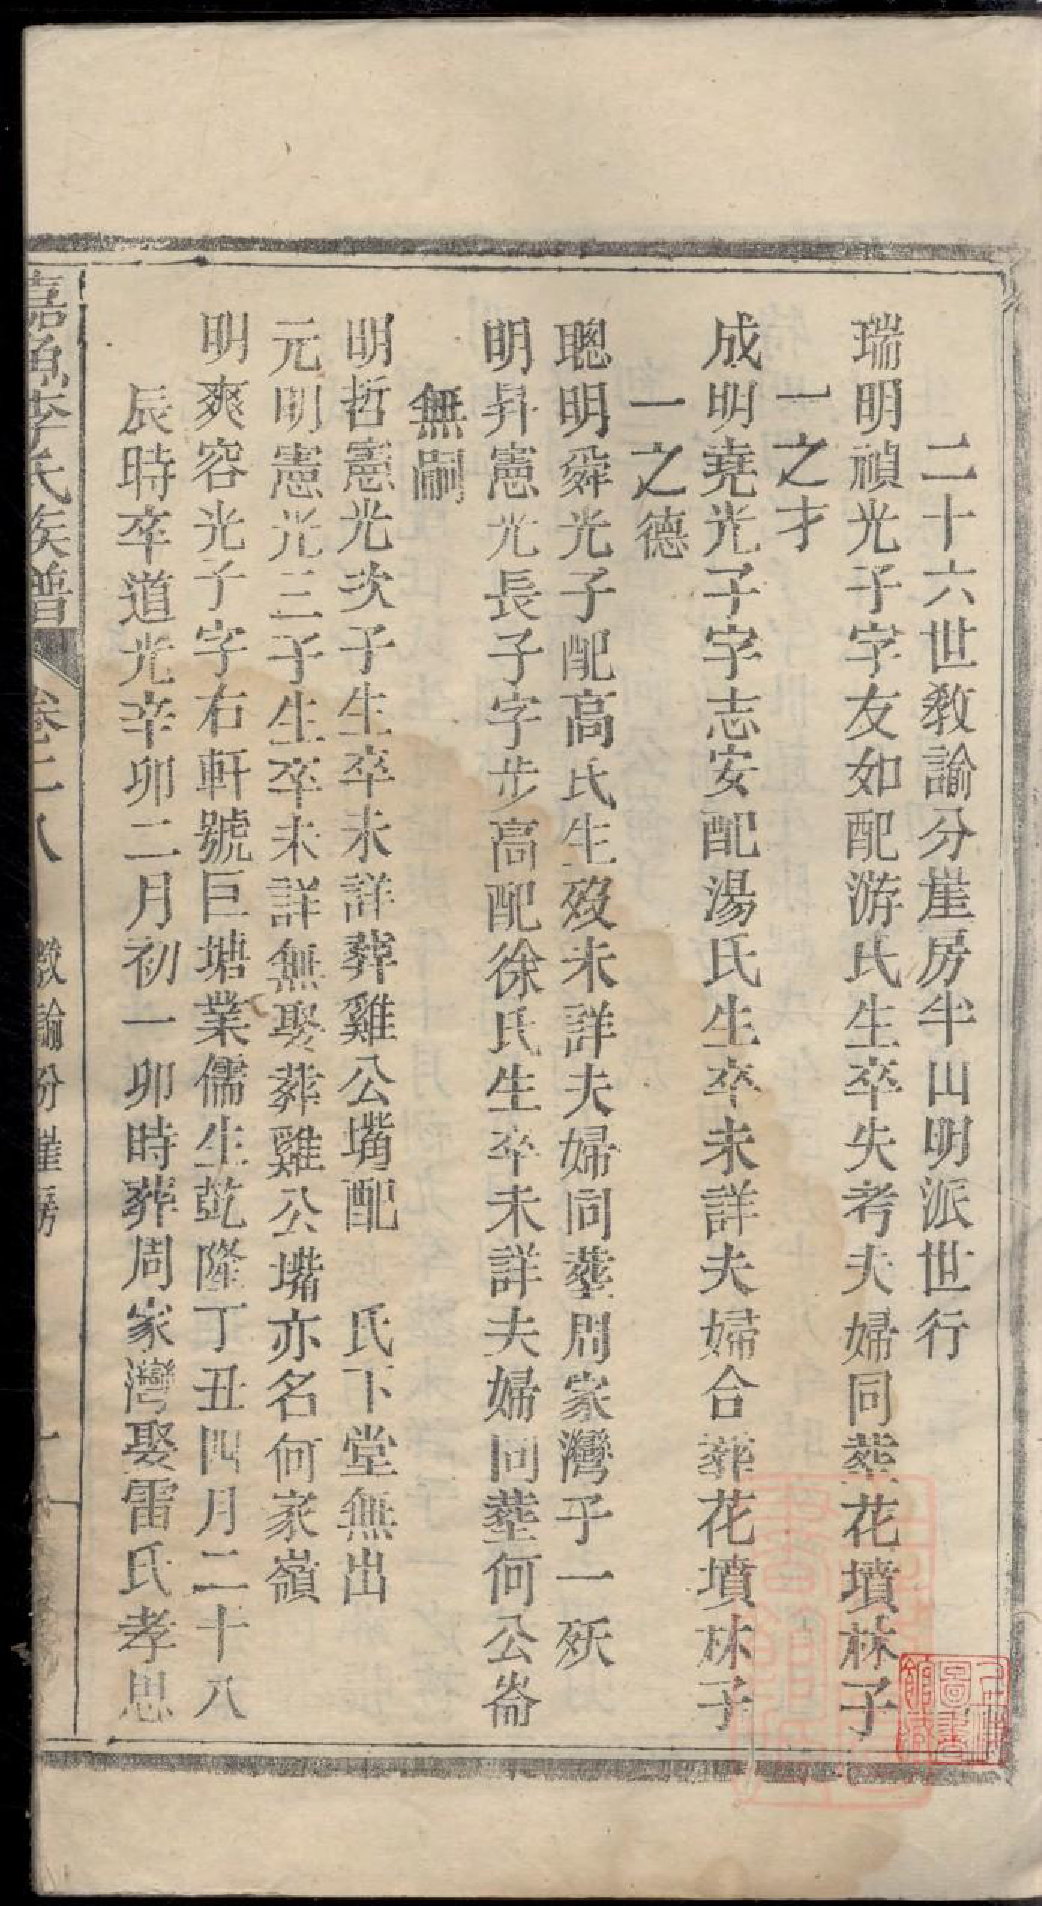 二十六世教諭分崖房半山明派世行
瑞明禎光子字友如配游氏生卒失考夫婦同塟花墳林子
一之才
成明堯光子字志安配湯氏生卒未詳夫婦合葬花墳林子
一之德
聰明舜光子配高氏生歿未詳夫婦同塟周家灣子一殀
明昇憲光長子字步高配徐氏生卒未詳夫婦同塟何公崙
無嗣
明哲憲光次子生卒未詳葬雞公嘴配　氏下堂無出
元明憲光三子生卒未詳無娶葬雞公嘴亦名何家嶺
明爽容光子字右軒號巨塘業儒生乾隆丁丑四月二十八
辰時卒道光辛卯二月初一卯時葬周家灣娶雷氏孝思
嘉魚李氏族譜　卷二八　教諭分崖房